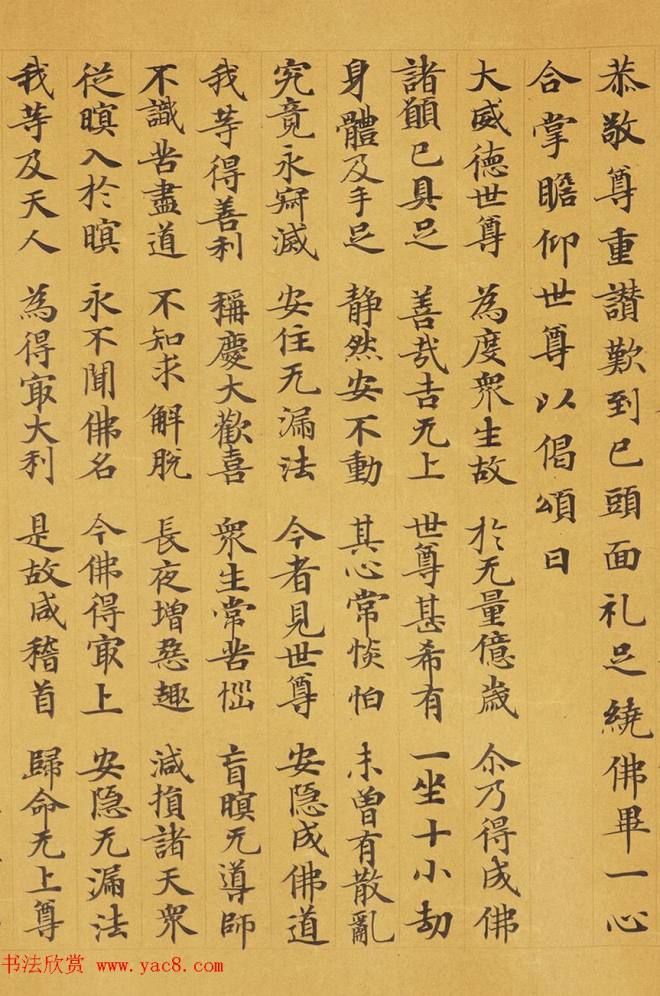 恭敬尊重讃歎到已頭面礼足繞佛畢一心
合掌瞻仰世尊以偈頌曰
大威德世尊 為度衆生故 於无量億歲 尒乃得成佛
諸願已具足 善哉吉无上 世尊甚希有 一坐十小劫
身體及手足 静然安不動 其心常惔怕 未曽有散亂
究竟永寂滅 安住无漏法 今者見世尊 安隠成佛道
我等得善利 稱慶大歡喜 衆生常苦惱 盲瞑无導師
不識苦盡道 不知求解脫 長夜增惡趣 減損諸天衆
從瞑入於瞑 永不聞佛名 今佛得冣上 安隠无漏法
我等及天人 為得冣大利 是故咸稽首 歸命无上尊
书法欣赏 www.yac8.com